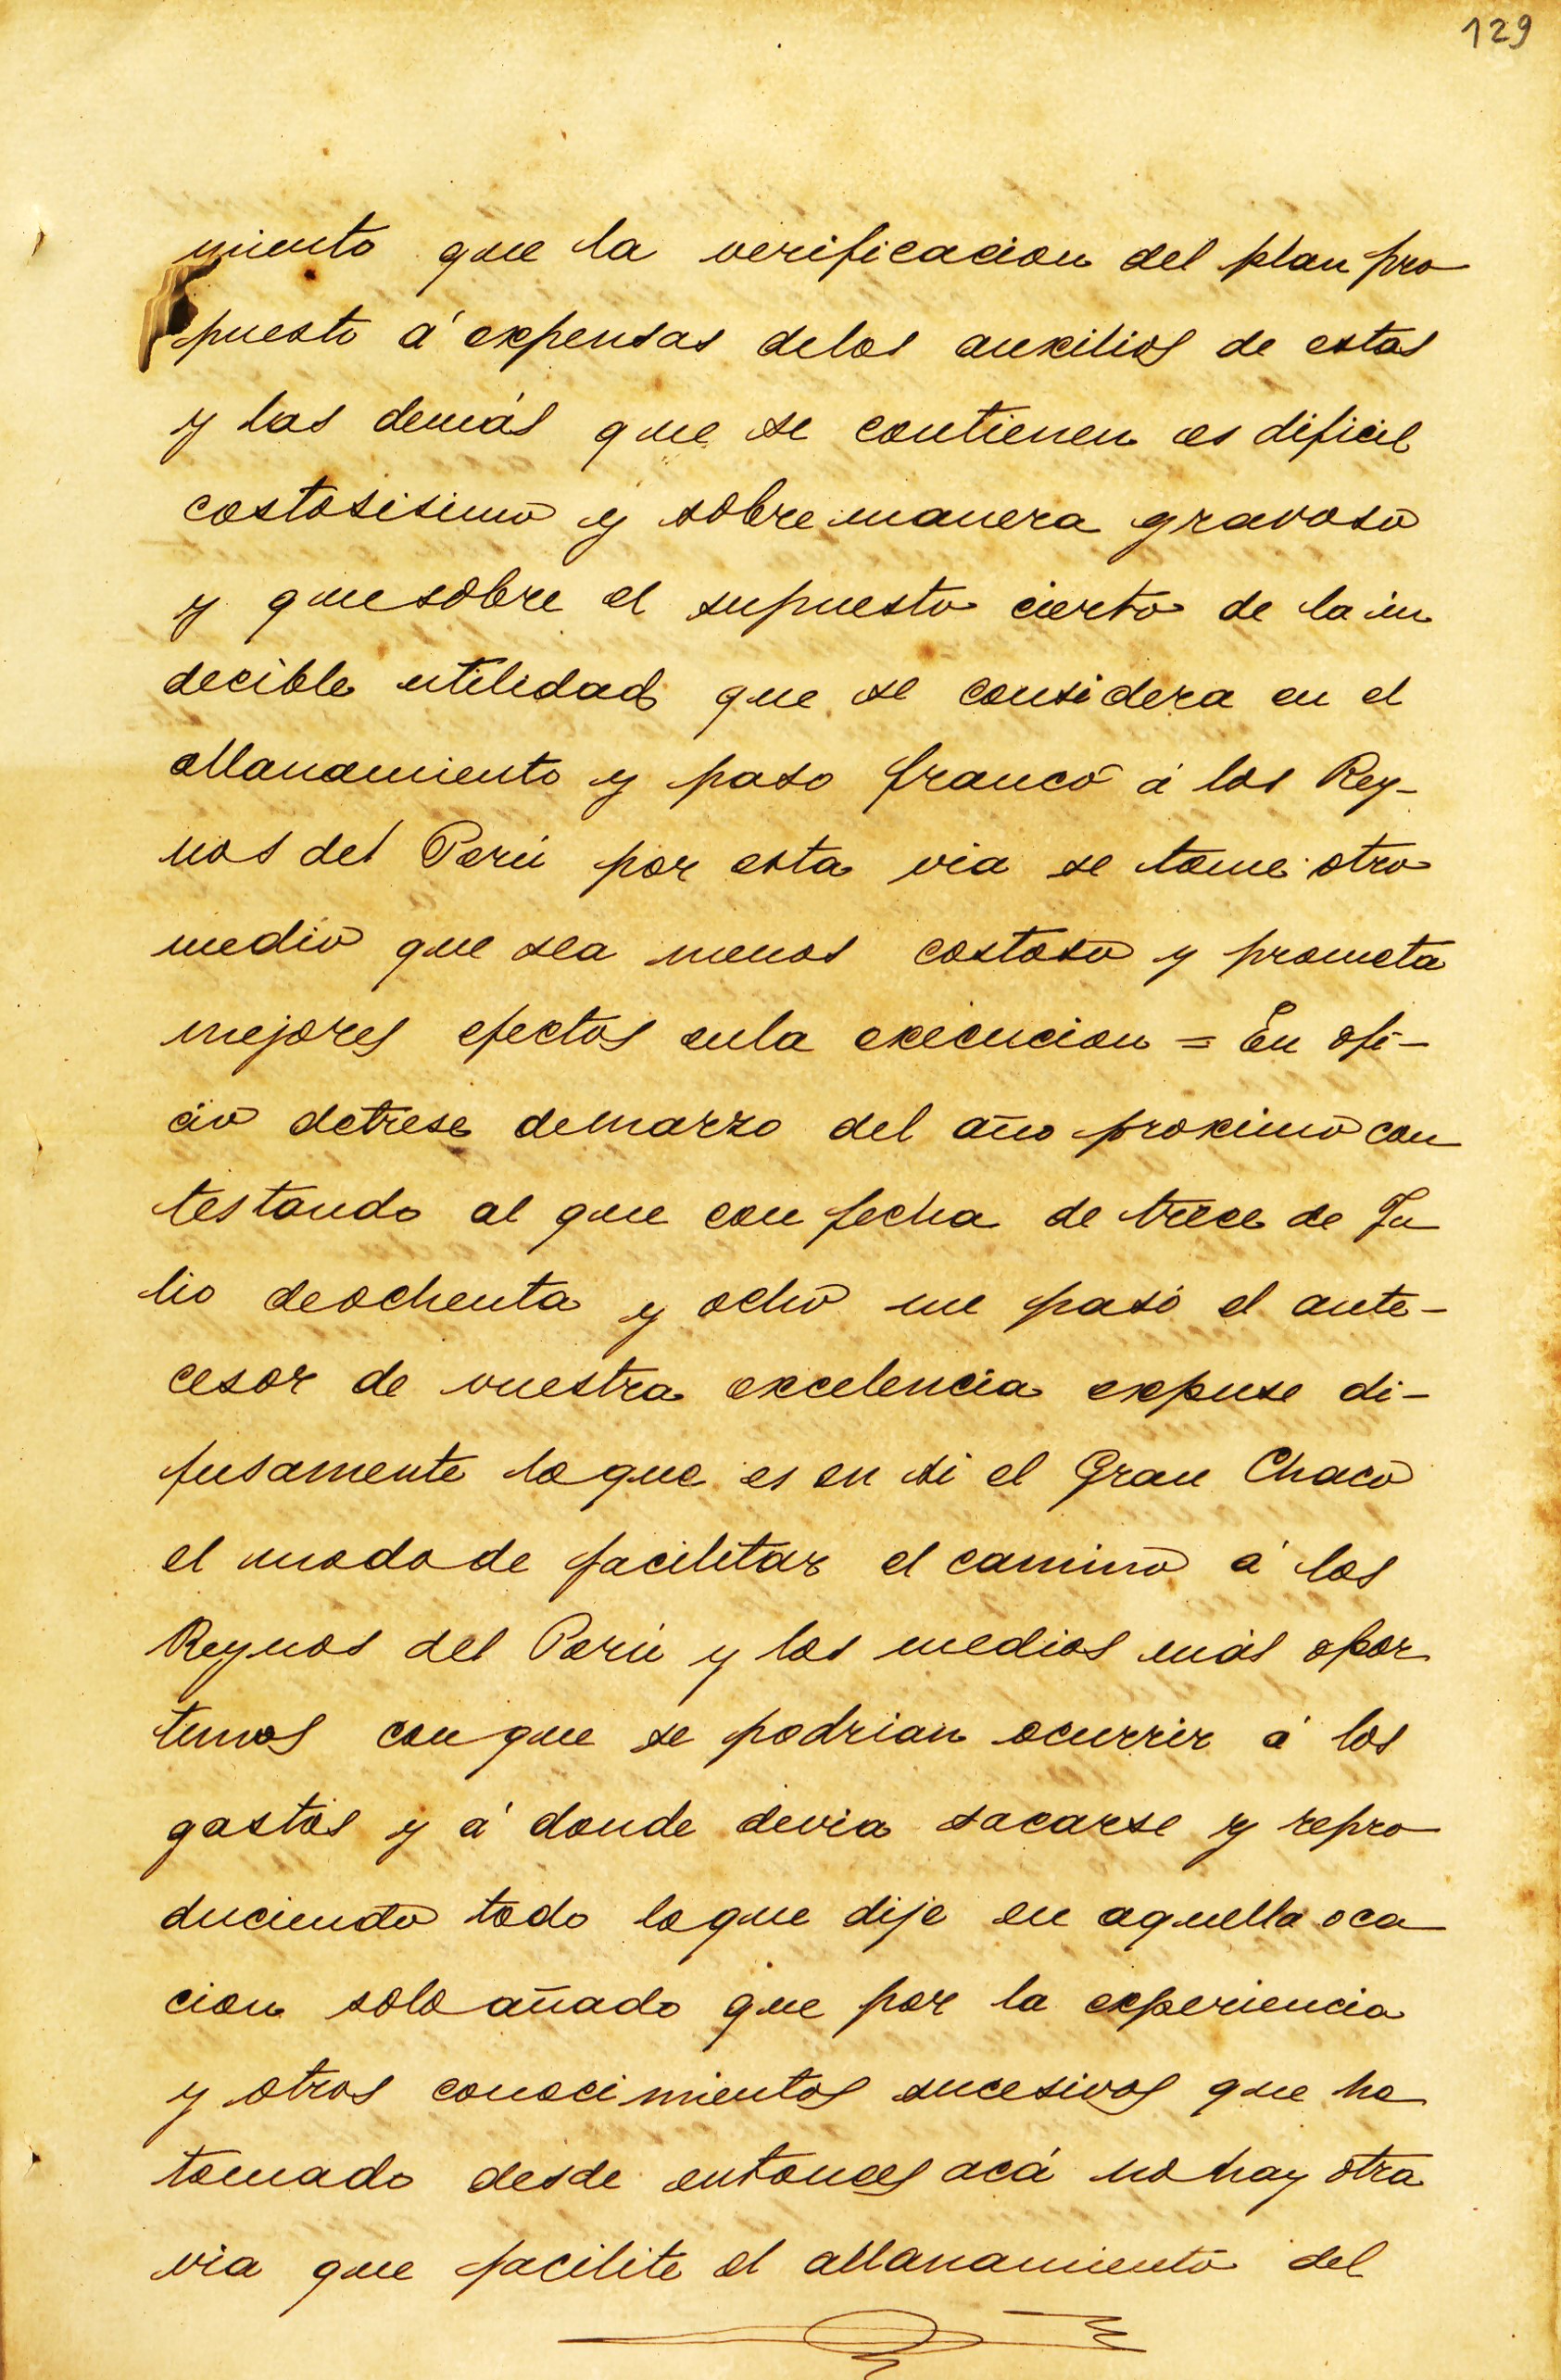 129
miento que la verificacion del plan pro
puesto á expensas delos auxilios de estas
y las demás que se contienen es dificil
costosisimo y sobre manera gravoso
y que sobre el supuesto cierto de la in
decible utilidad que se considera en el
allanamiento y paso franco á los Rey-
nos del Perú por esta via se tome otro
medio que sea menos costoso y prometa
mejores efectos enla execucion = En ofi-
cio detrese demarzo del año proximo con
testando al que con fecha de trece de Ju
lio deochenta y ocho me pasó el ante-
cesor de vuestra excelencia expuse di-
fusamente loque es en si el Gran Chaco
el modo de facilitar el camino á los
Reynos del Perú y los medios más opor
tunos conque se podrian ocurrir á los
gastos y á donde devia sacarse y repro
duciendo todo loque dije en aquella oca
cion solo añado que por la experiencia
y otros conocimientos sucesivos que he
tomado desde entonces acá no hay otra
via que facilite el allanamiento del